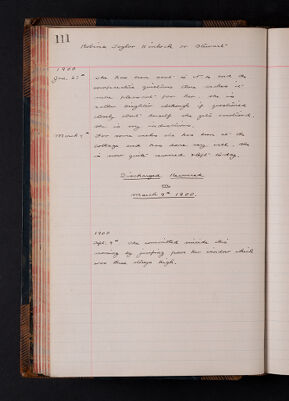 111
Robina Taylor Kinloch or Stewart
1900
Jan. 25th She has been sent in it to end the
comparative quietness there makes it
more pleasant for her. She is
rather brighter although if questioned
closely about herself she gets emotional.
She is very industrious.
March 9th For some weeks she has been at the
cottage and has done very well. She
is now quite recovered & left to-day.
Discharged Recovered
on
March 9th 1900.
1900
Sept. 9th She committed suicide this
morning by jumping from her window which
was three storeys high.